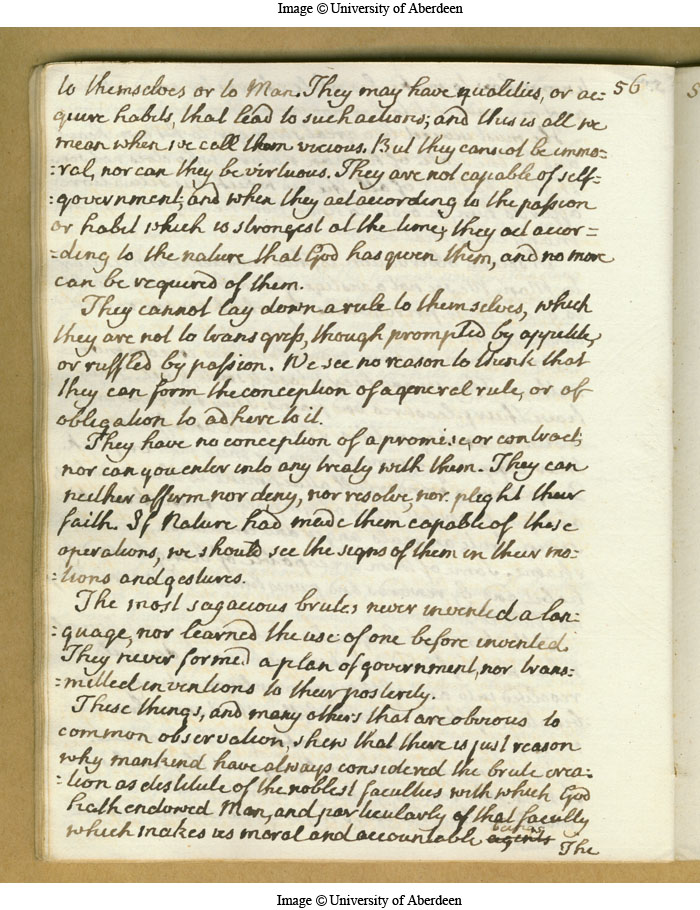 Image © University of Aberdeen
56
to themselves or to Man. They may have qualities, or ac=
quire habits, that lead to such actions; and this is all we
mean when we call them vicious. But they cannot be immo=
=ral, nor can they be virtuous. They are not capable of self-
=government; and when they act according to the passion
or habit which is strongest at the time, they act accor=
=ding to the nature that God has given them, and no more
can be required of them.
They cannot lay down a rule to themselves, which
they are not to transgress, though prompted by appetite,
or ruffled by passion. We see no reason to think that
they can form the conception of a general rule, or of
obligation to adhere to it.
They have no conception of a promise, or contract;
nor can you enter into any treaty with them. They can
neither affirm nor deny, nor resolve, nor plight their
faith. If Nature had made them capable of these
operations, we should see the signs of them in their mo=
=tions and gestures.
The most sagacious brutes never invented a lan=
=guage, nor learned the use of one before invented.
They never formed a plan of government, nor trans=
=mitted inventions to their posterity.
These things, and many others that are obvious to
common observation, shew that there is just reason
why mankind have always considered the brute crea=
=tion as destitute of the noblest faculties with which God
hath endowed Man, and particularly of that faculty
which makes us moral and accountable agents beings
The
Image © University of Aberdeen